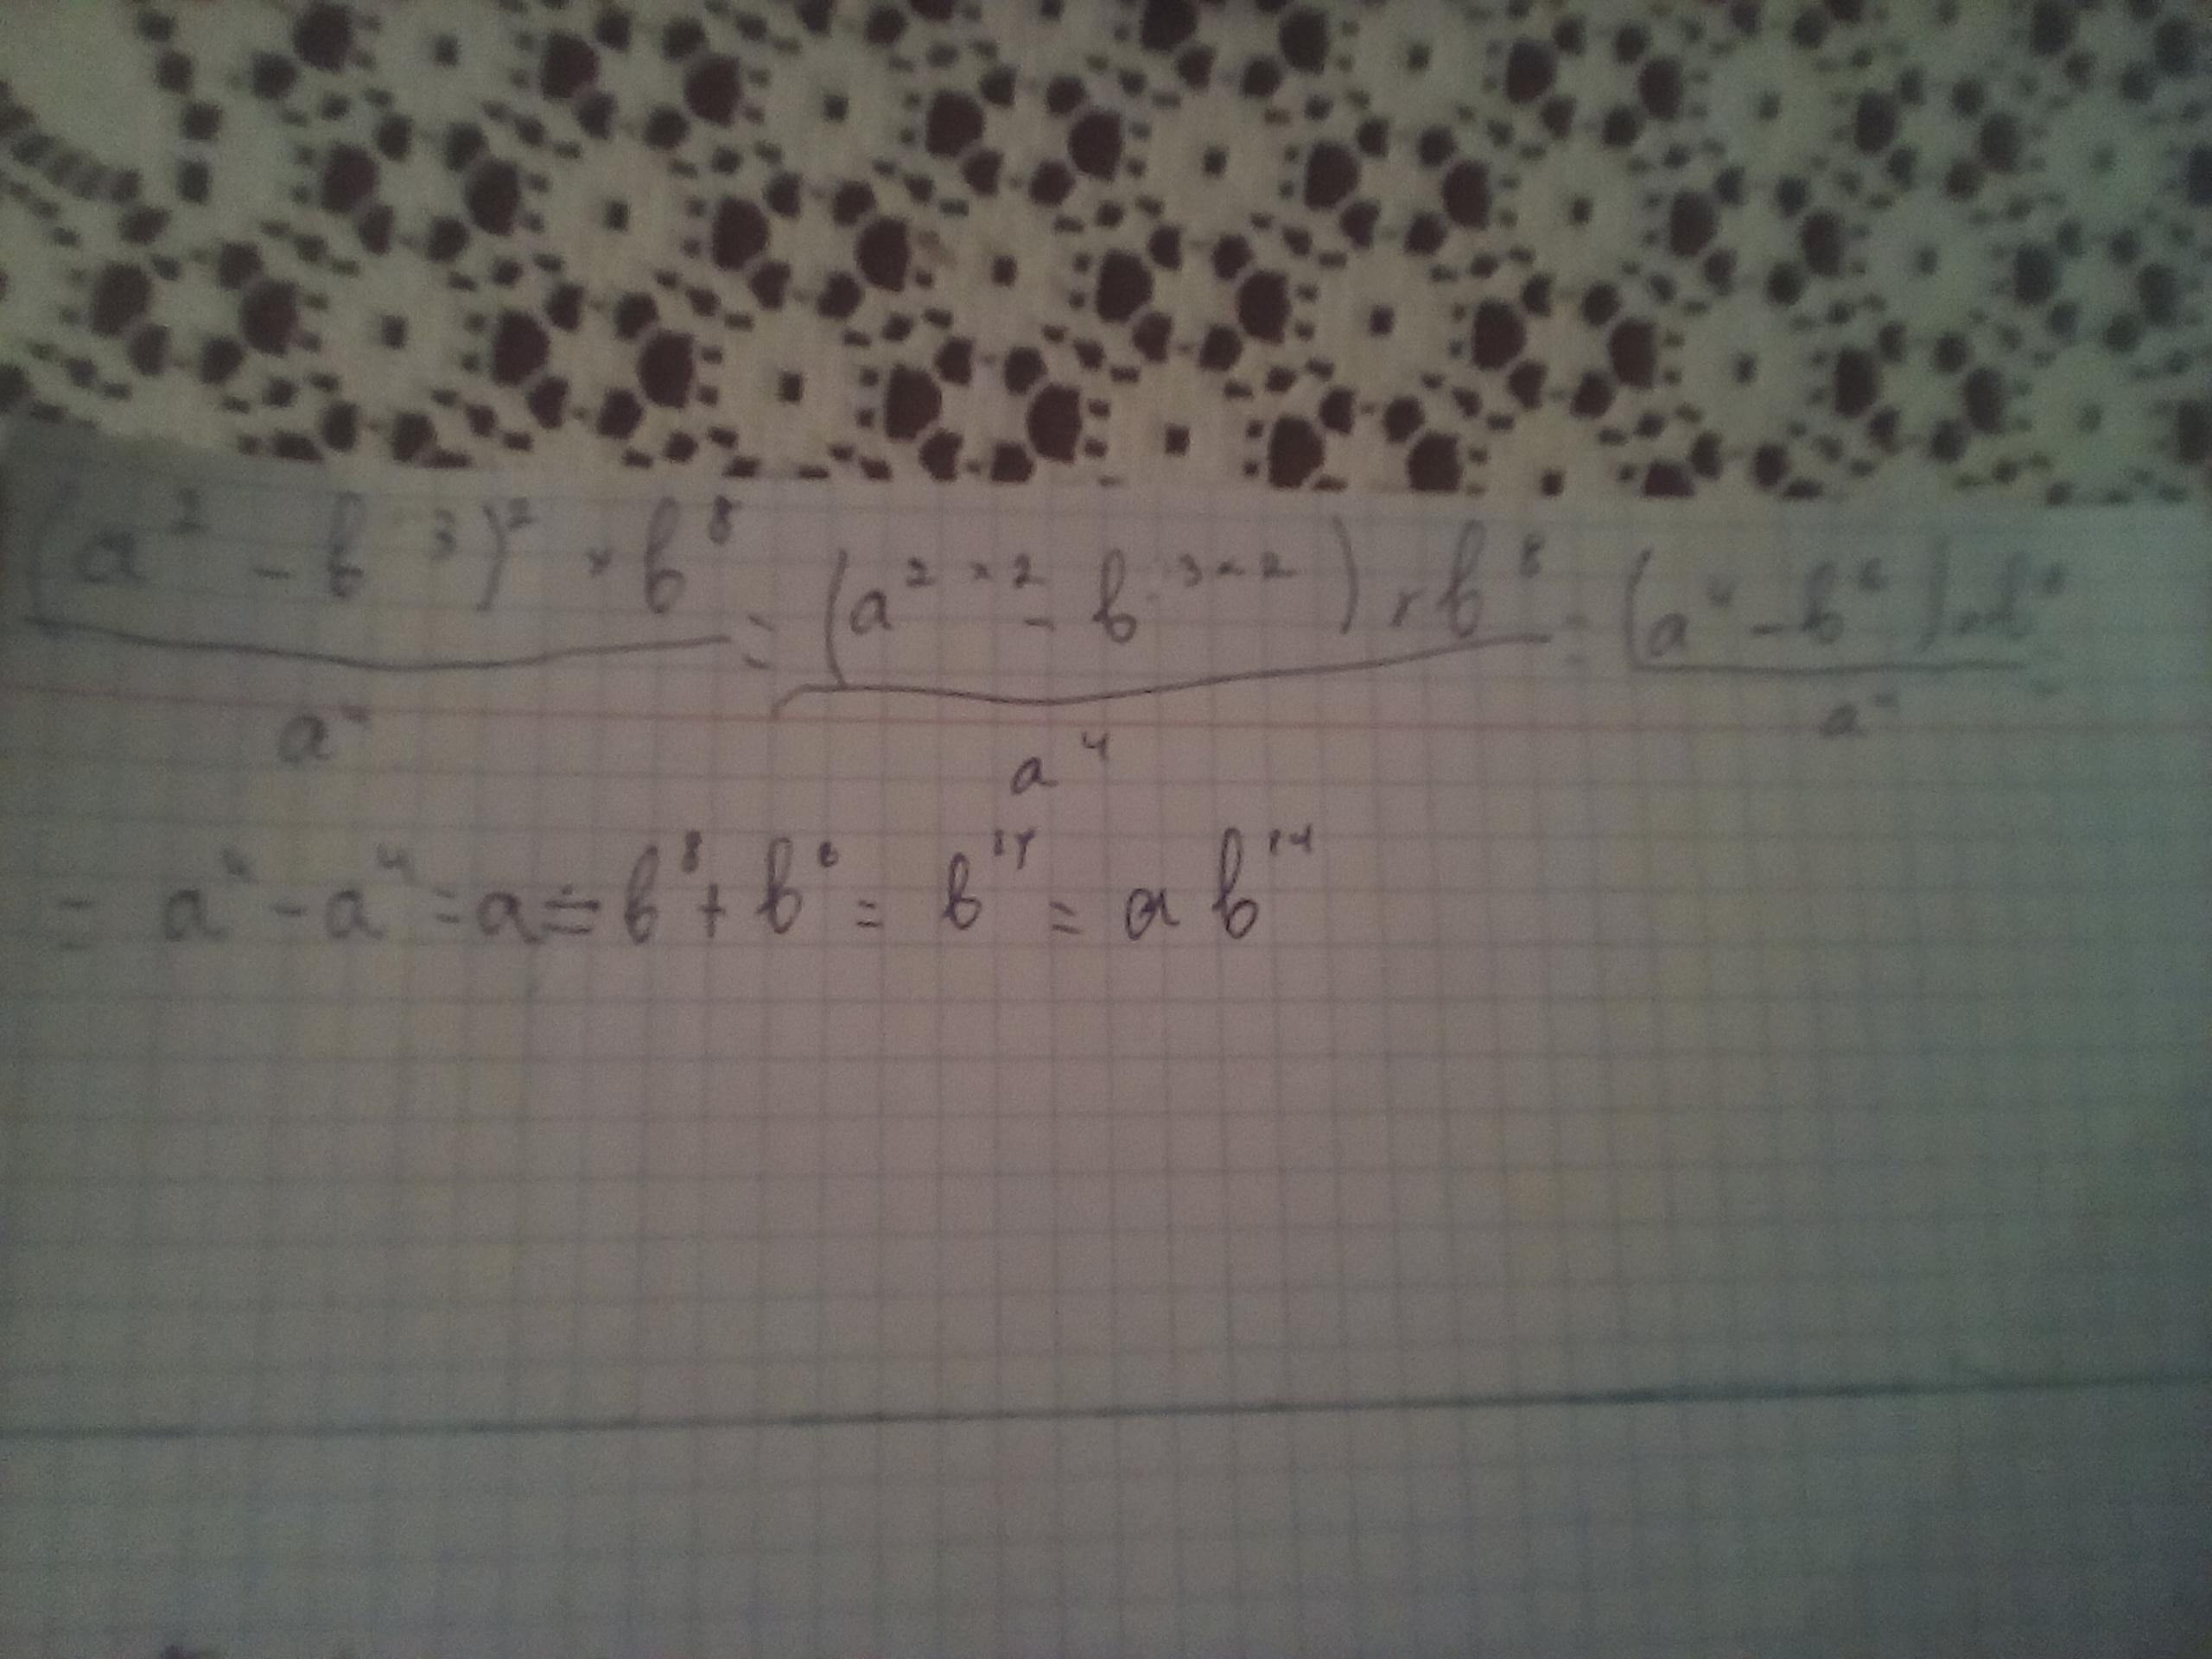 (a² - b³)² × b⁸ / a⁴ = (a²ˣ² - b³ˣ²) × b⁸ / a⁴ = (a⁴ - b⁶) × b⁸ / a⁴ =
= a⁴ - a⁴ = a = b⁸ + b⁶ = b¹⁴ = a b¹⁴